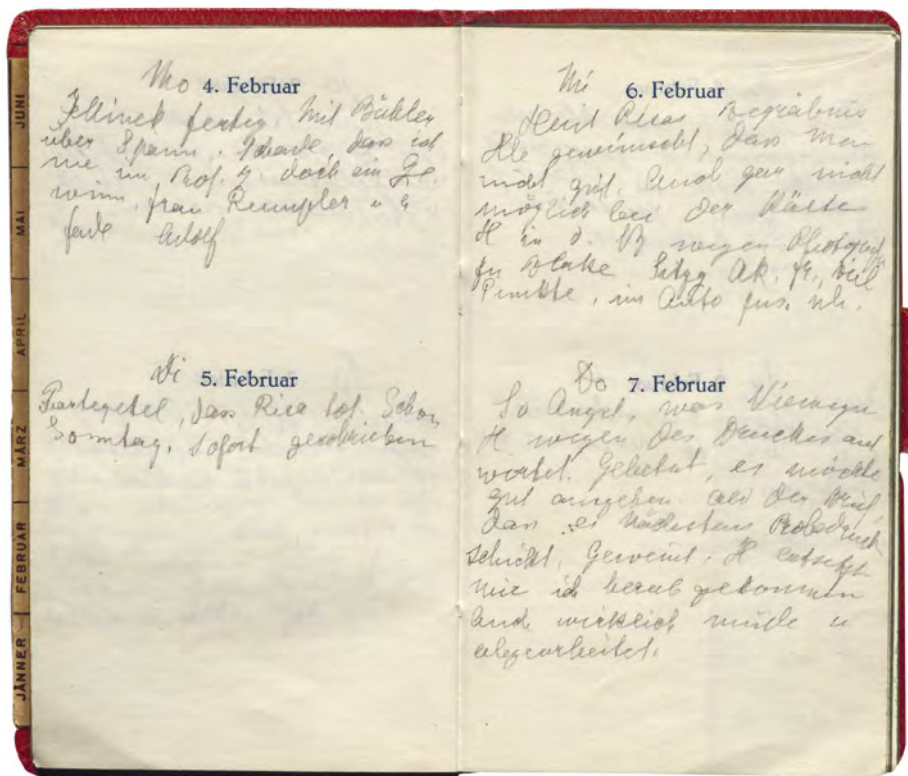 JUNI
MAI
APRIL
MÄRZ
FEBRUAR
JÄNNER
Mo 4. Februar
Jellinek fertig. Mit Bühler
über Spann. Schade dass ich
nie im Prof. Z. doch ein Ge-
winn. Frau Rumpler u
Adolf
Di 5. Februar
Partezettel, dass Risa tot. Schon
Sonntag. Sofort geschrieben
Mi 6. Februar
Heut Risas Begräbnis
gewünscht, dass man
nicht gut. Auch gar nicht
möglich bei der Kälte
H in d. wegen Photograf
zu Blake Sitzg Ak. fr., viel
Punkte, im Auto zus.
Do 7. Februar
So Angst, was Vieweg
H wegen des Druckes ant
wortet. Gebetet, es möchte
gut ausgehen. Als der Brief,
dass er nächstens Probedruck
schickt, Geweint. H entsetzt
wie ich herab gekommen
Und wirklich müde u
abgearbeitet.